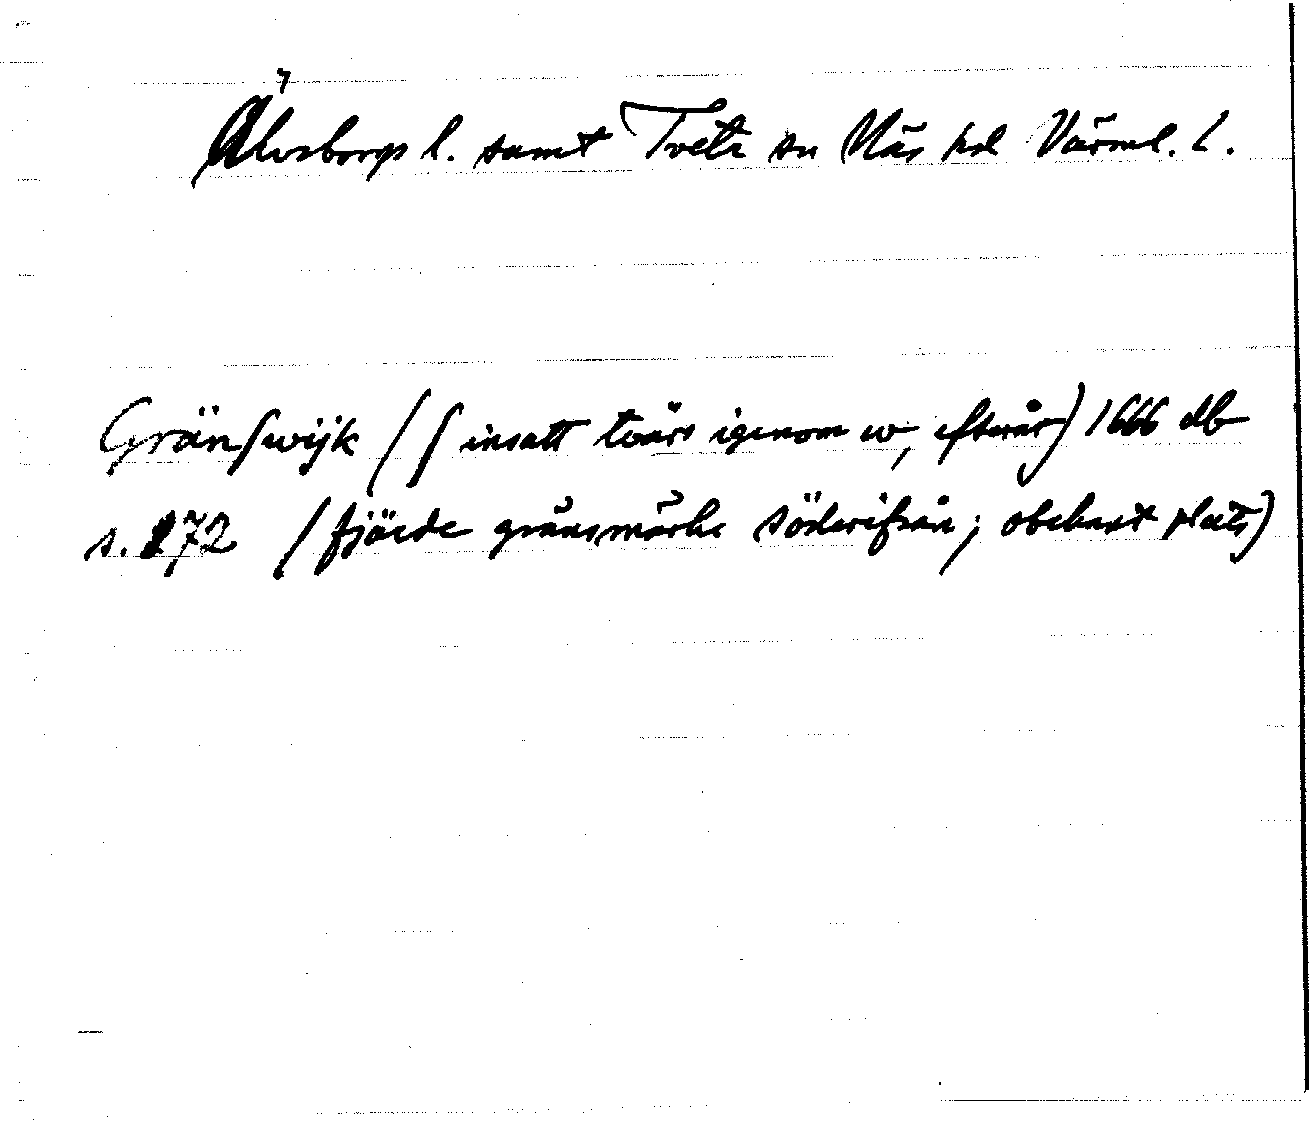 Älvsborgs l. samt Tveta sn Näs hd Värml. l.
Gränſwijk (ſ insatt tvärs igenom w, efteråt) 1666 db
s. 272 (fjärde gränsmärke söderifrån; obekant plats)